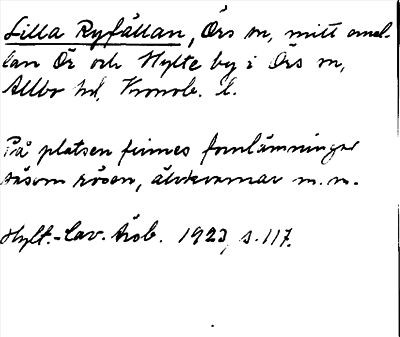 Lilla Ryfällan, Örs sn, mitt emel-
lan Ör och Hylte by i Örs sn,
Allbo hd, Kronob. l.
På platsen finnes fornlämningar
såsom rösen, älvkvarnar m.m.
Hylt.-Cav. Årsb. 1923, s. 117.